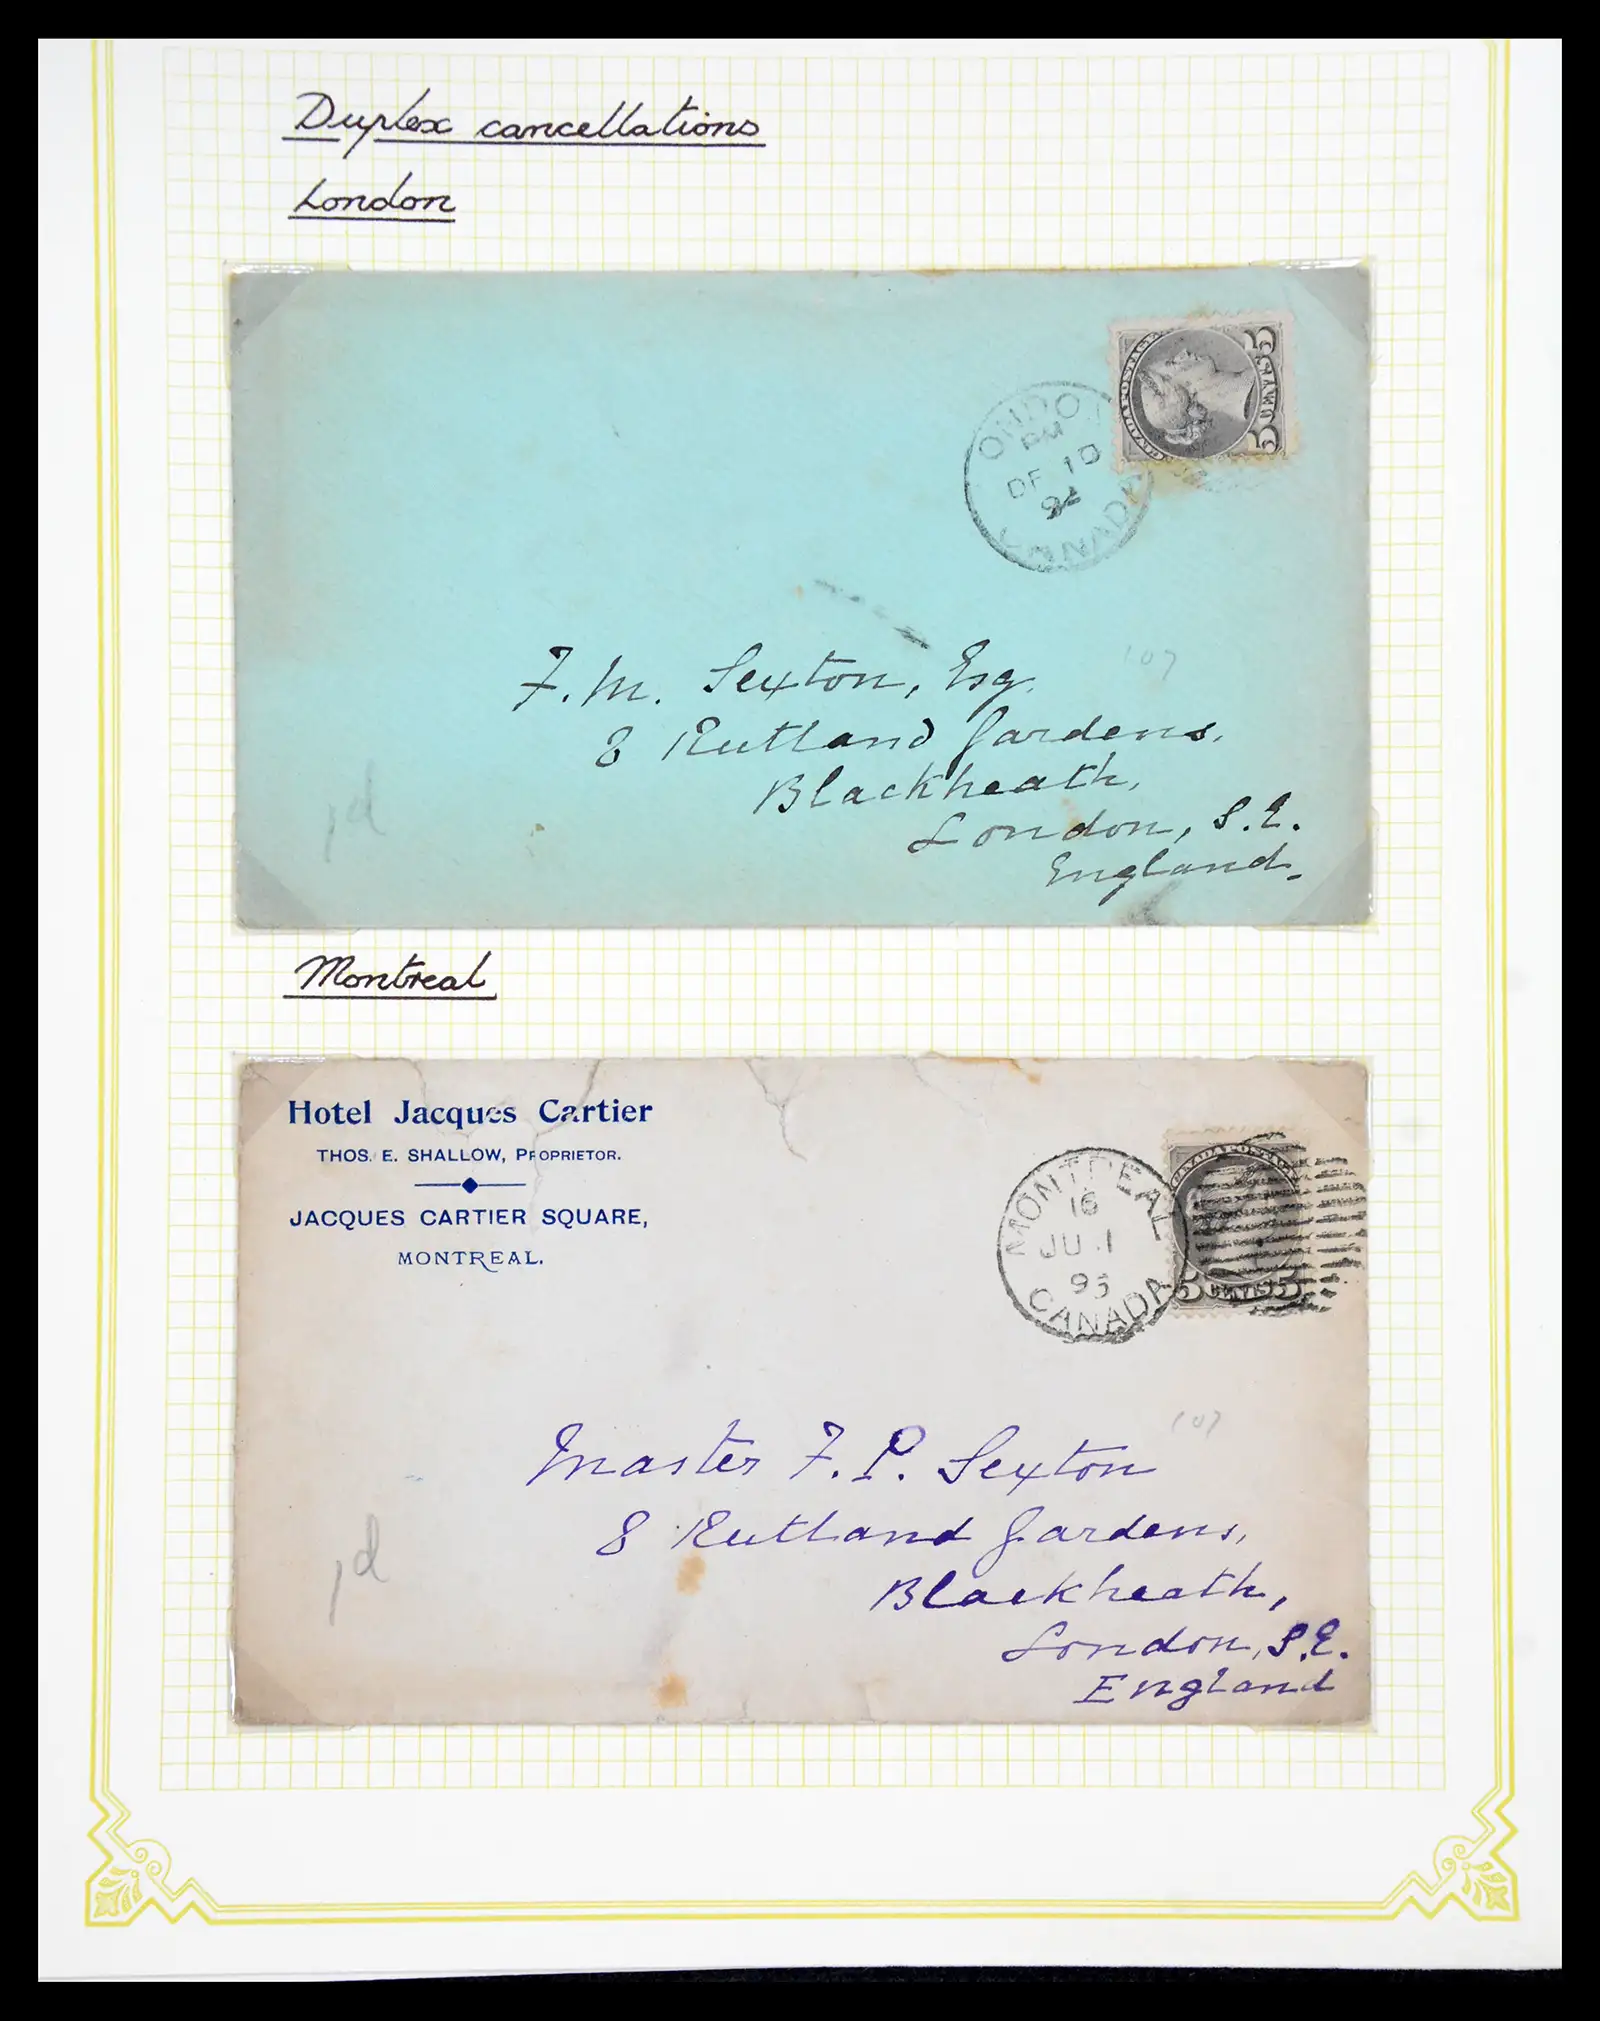 Duplex cancellations
London
CANADA POSTAGE
5 CENTS 5
ONDO
PM
DE 10
94
CANADA
107
F. M. Sexton, Esq.
8 Rutland Gardens,
Blackheath,
London, S.E.
England.
1d
Montreal
Hotel Jacques Cartier
THOS. E. SHALLOW, PROPRIETOR.
JACQUES CARTIER SQUARE,
MONTREAL.
MONTREAL
16
JU 1
CANADA
CANADA POSTAGE
5 CENTS 5
107
Master F. P. Sexton
8 Rutland Gardens,
Blackheath,
London, S.E.
England
1d